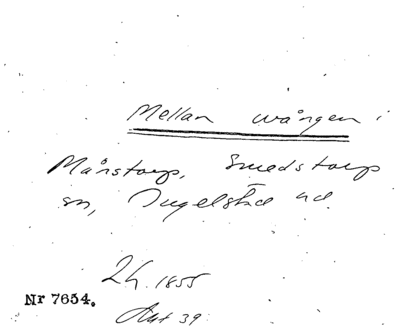 Mellan wången i
Månstorp, Smedstorp
sn, Ingelstad hd.
24. 1855
Nr 7654.
Akt 39.